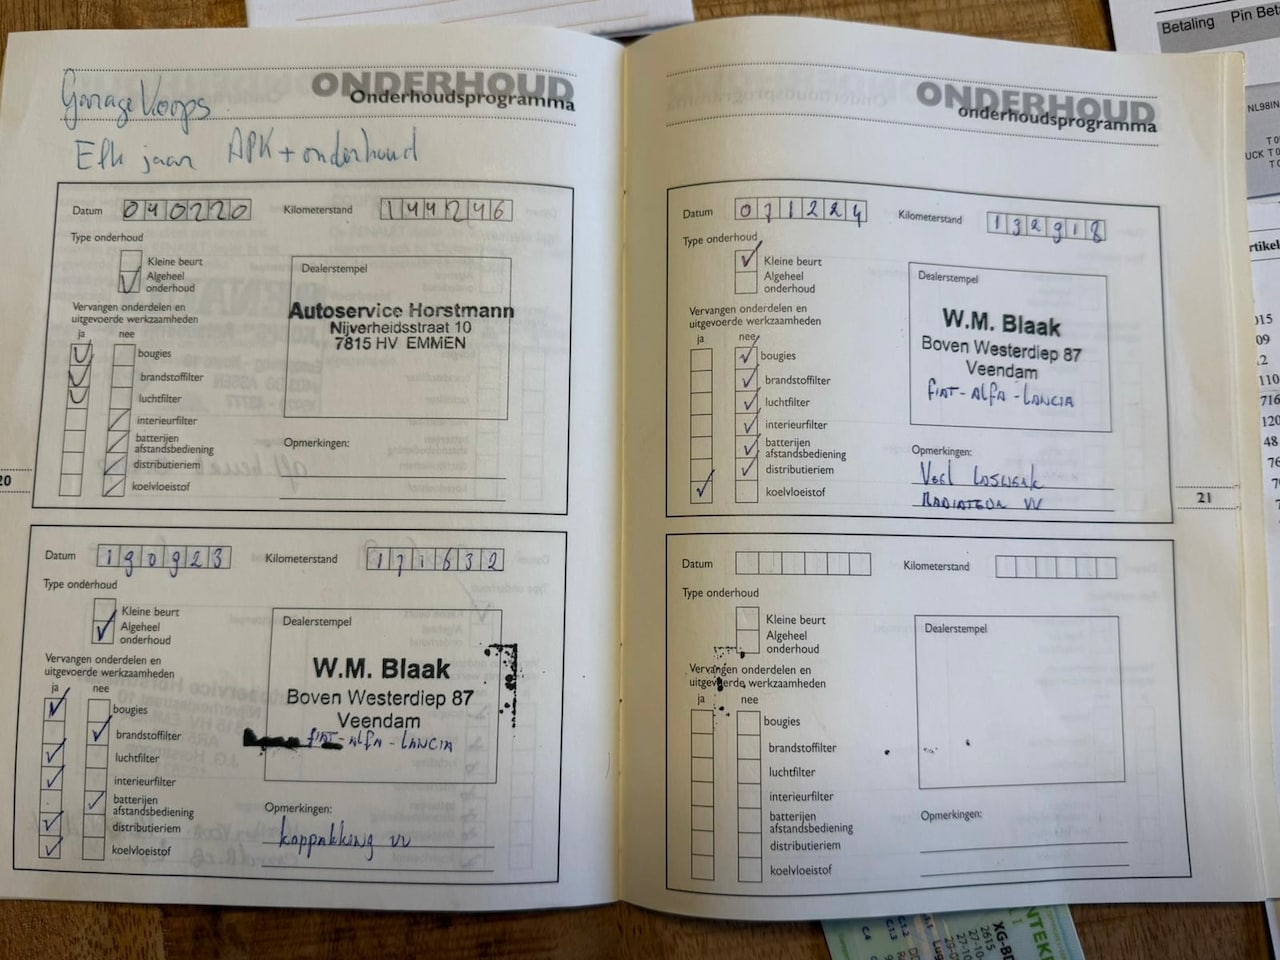 Garage Voops
Elk jaar APK + onderhoud
ONDERHOUD
Onderhoudsprogramma
Datum 040220 Kilometerstand 144246
Type onderhoud
Kleine beurt
Algeheel
onderhoud
Vervangen onderdelen en
uitgevoerde werkzaamheden
ja nee
bougies
brandstoffilter
luchtfilter
interieurfilter
batterijen
afstandsbediening
distributieriem
koelvloeistof
Dealerstempel
Autoservice Horstmann
Nijverheidsstraat 10
7815 HV EMMEN
Opmerkingen:
20
Datum 190923 Kilometerstand 171632
Type onderhoud
Kleine beurt
Algeheel
onderhoud
Vervangen onderdelen en
uitgevoerde werkzaamheden
ja nee
bougies
brandstoffilter
luchtfilter
interieurfilter
batterijen
afstandsbediening
distributieriem
koelvloeistof
Dealerstempel
W.M. Blaak
Boven Westerdiep 87
Veendam
FIAT-Alfa-LANCIA
Opmerkingen:
koppakking vv
ONDERHOUD
onderhoudsprogramma
Datum 071224 Kilometerstand 132918
Type onderhoud
Kleine beurt
Algeheel
onderhoud
Vervangen onderdelen en
uitgevoerde werkzaamheden
ja nee
bougies
brandstoffilter
luchtfilter
interieurfilter
batterijen
afstandsbediening
distributieriem
koelvloeistof
Dealerstempel
W.M. Blaak
Boven Westerdiep 87
Veendam
FIAT-Alfa-LANCIA
Opmerkingen:
Veel Loswerk
RADIATEUR VV
21
Datum Kilometerstand
Type onderhoud
Kleine beurt
Algeheel
onderhoud
Vervangen onderdelen en
uitgevoerde werkzaamheden
ja nee
bougies
brandstoffilter
luchtfilter
interieurfilter
batterijen
afstandsbediening
distributieriem
koelvloeistof
Dealerstempel
Opmerkingen:
Betaling Pin Bet
NL98IN